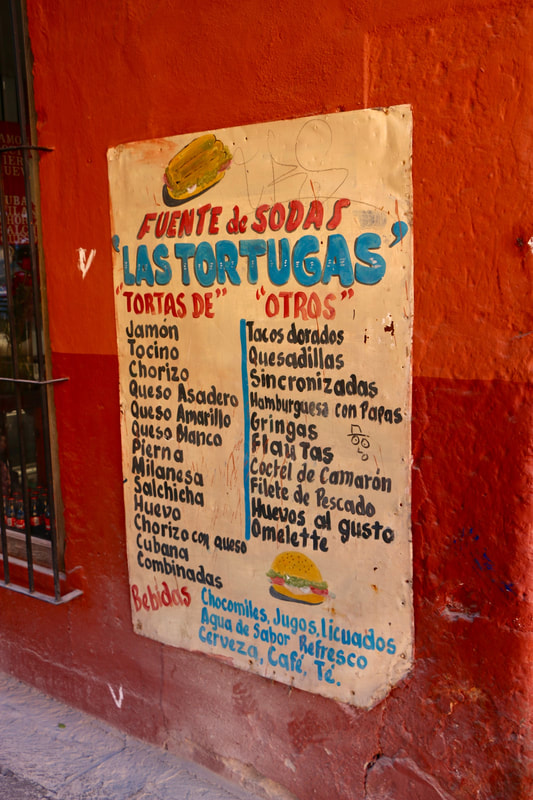 FUENTE de SODAS
'LAS TORTUGAS'
"TORTAS DE"
Jamón
Tocino
Chorizo
Queso Asadero
Queso Amarillo
Queso Blanco
Pierna
Milanesa
Salchicha
Huevo
Chorizo con queso
Cubana
Combinadas
"OTROS"
Tacos dorados
Quesadillas
Sincronizadas
Hamburguesa con Papas
Gringas
Flautas
Coctél de Camarón
Filete de Pescado
Huevos al gusto
Omelette
Bebidas
Chocomiles, Jugos, Licuados
Agua de Sabor Refresco
Cerveza, Café, Té.